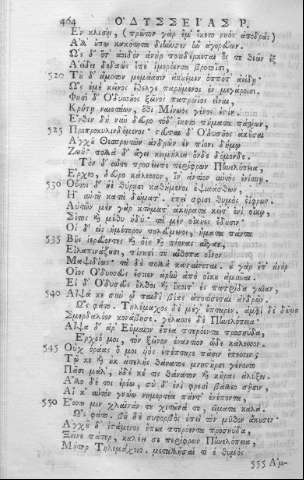 464 ΟΔΥΣΣΕΙΑΣ Ρ.
Ἐν κλισίῃ, (πρῶτον γὰρ ἔμ' ἵκετο νηὸς ἀποδράς·)
Ἀλλ' οὔπω κακότητα διήνυσεν ἣν ἀγορεύων.
Ὡς δ' ὅτ' ἀοιδὸν ἀνὴρ ποτιδέρκεται ὅς τε θεῶν ἒξ
Ἀείδει δεδαὼς ἔπε' ἱμερόεντα βροτοῖσι,
520 Τοῦ δ' ἄμοτον μεμάασιν ἀκουέμεν ὁππότ' ἀείδῃ·
Ὣς ἐμὲ κεῖνος ἔθελγε παρήμενος ἐν μεγάροισι.
Φησὶ δ' Ὀδυσσῆος ξεῖνος πατρώϊος εἶναι,
Κρήτῃ ναιετάων, ὅθι Μίνωος γένος ἐστίν.
Ἔνθεν δὴ νῦν δεῦρο τόδ' ἵκετο πήματα πάσχων,
525 Προπροκυλινδόμενος· στεῦται δ' Ὀδυσῆος ἀκοῦσαι
Ἀγχοῦ Θεσπρωτῶν ἀνδρῶν ἐν πίονι δήμῳ
Ζωοῦ· πολλὰ δ' ἄγει κειμήλια ὅνδε δόμονδε.
Τὸν δ' αὖτε προσέειπε περίφρων Πηνελόπεια,
Ἔρχεο, δεῦρο κάλεσσον, ἵν' ἀντίον αὐτὸς ἐνίσπῃ.
530 Οὗτοι δ' ἠὲ θύρῃσι καθήμενοι ἑψιαάσθων,
Ἢ αὐτοῦ κατὰ δώματ', ἐπεί σφισι θυμὸς ἐΰφρων.
Αὐτῶν μὲν γὰρ κτήματ' ἀκήρατα κεῖτ' ἐνὶ οἴκῳ,
Σῖτος καὶ μέθυ ἡδύ· τὰ μὲν οἰκῆες ἔδουσιν·
Οἱ δ' εἰς ἡμέτερον πωλεύμενοι, ἤματα πάντα
535 Βοῦς ἱερεύοντες καὶ ὄϊς καὶ πίονας αἶγας,
Εἰλαπινάζουσι, πίνουσί τε αἴθοπα οἶνον
Μαψιδίως· τὰ δὲ πολλὰ κατάνεται. οὐ γὰρ ἔπ' ἀνὴρ
Οἷος Ὀδυσσεὺς ἔσκεν ἀρὴν ἀπὸ οἴκου ἀμῦναι.
Εἰ δ' Ὀδυσεὺς ἔλθοι καὶ ἵκοιτ' ἐς πατρίδα γαῖαν,
540 Αἶψά κε σὺν ᾧ παιδὶ βίας ἀποτίσεται ἀνδρῶν.
Ὣς φάτο. Τηλέμαχος δὲ μέγ' ἔπταρεν, ἀμφὶ δὲ δῶμα
Σμερδαλέον κονάβησε. γέλασσε δὲ Πηνελόπεια·
Αἶψα δ' ἄρ' Εὔμαιον ἔπεα πτερόεντα προσηύδα,
Ἔρχεό μοι, τὸν ξεῖνον ἐναντίον ὧδε κάλεσσον.
545 Οὐχ ὁράᾳς ὅ μοι υἱὸς ἐπέπταρε πᾶσιν ἔπεσσιν;
Τῷ κε καὶ οὐκ ἀτελὴς θάνατος μνηστῆρσι γένοιτο
Πᾶσι μάλ', οὐδέ κέ τις θάνατον καὶ κῆρας ἀλύξει.
Ἄλλο δέ τοι ἐρέω, σὺ δ' ἐνὶ φρεσὶ βάλλεο σῇσιν,
Αἴ κ' αὐτὸν γνώω νημερτέα πάντ' ἐνέποντα,
550 Ἕσσω μιν χλαῖνάν τε χιτῶνά τε, εἵματα καλά.
Ὣς φάτο. βῆ δὲ συφορβὸς ἐπεὶ τὸν μῦθον ἄκουσεν·
Ἀγχοῦ δ' ἱστάμενος ἔπεα πτερόεντα προσηύδα,
Ξεῖνε πάτερ, καλέει σε περίφρων Πηνελόπεια,
Μήτηρ Τηλεμάχοιο. μεταλλῆσαί τί ἑ θυμὸς
555 Ἀμ-